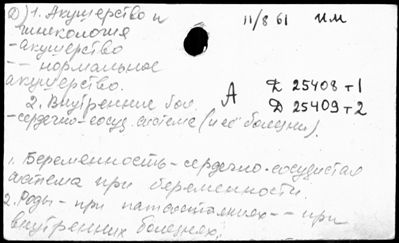 Д) 1. Акушерство и 11/8 61 им
гинекология
-акушерство
-- нормальное
акушерство.
2. Внутренние бол. А Д 25408 т1
-сердечно-сосуд. система (и её болезни). Д 25409 т2
1. Беременность - сердечно-сосудистая
система при беременности.
2. Роды - при патсостояниях -- при
внутренних болезнях.